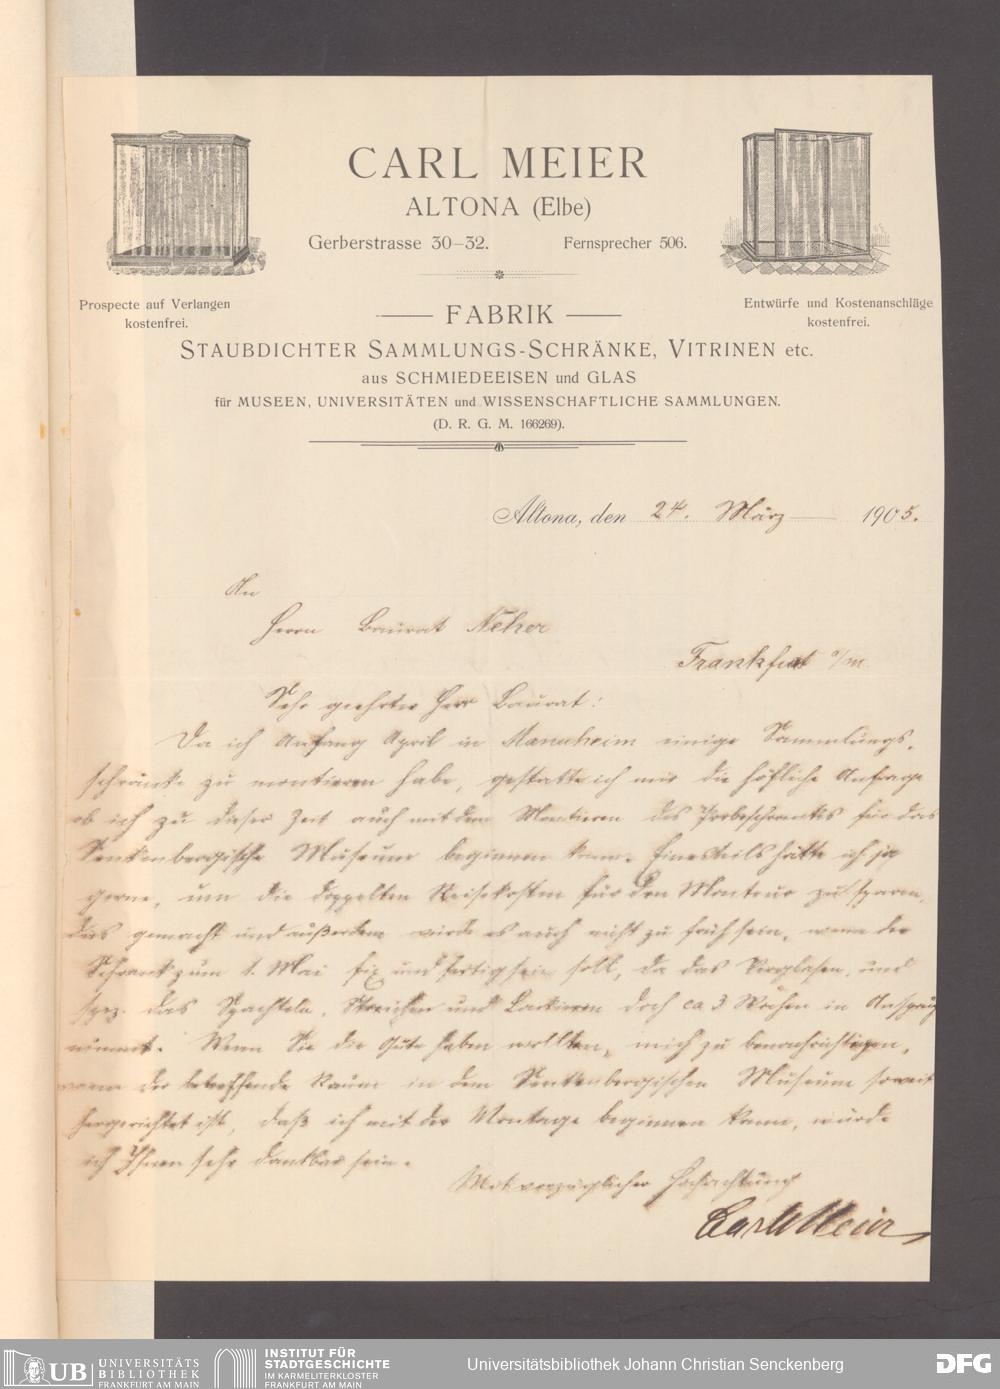 CARL MEIER
ALTONA (Elbe)
Gerberstrasse 30–32. Fernsprecher 506.
Prospecte auf Verlangen
kostenfrei.
Entwürfe und Kostenanschläge
kostenfrei.
FABRIK
STAUBDICHTER SAMMLUNGS-SCHRÄNKE, VITRINEN etc.
aus SCHMIEDEEISEN und GLAS
für MUSEEN, UNIVERSITÄTEN und WISSENSCHAFTLICHE SAMMLUNGEN.
(D. R. G. M. 166269).
Altona, den 24. März 1905.
An
Herrn Baurat Neher
Frankfurt a/M
Sehr geehrter Herr Baurat!
Da ich Anfang April in Mannheim einige Sammlungs-
schränke zu montieren habe, gestatte ich mir die höfliche Anfrage
ob ich zu dieser Zeit auch mit dem Montieren des Probeschrankes für das
Senckenbergische Museum beginnen kann. Einesteils hätte ich ja
gerne, um die doppelten Reisekosten für den Monteur zu sparen,
das gemacht und außerdem würde es auch nicht zu früh sein, wenn der
Schrank zum 1. Mai fix und fertig sein soll, da das Verglasen, und
spez. das Spachteln, Streichen und Lackieren doch ca 3 Wochen in Anspruch
nimmt. Wenn Sie die Güte haben wollten, mich zu benachrichtigen,
wann der betreffende Raum in dem Senckenbergischen Museum soweit
hergerichtet ist, daß ich mit der Montage beginnen kann, würde
ich Ihnen sehr dankbar sein.
Mit vorzüglicher Hochachtung
Carl Meier
UB UNIVERSITÄTS
BIBLIOTHEK
FRANKFURT AM MAIN
INSTITUT FÜR
STADTGESCHICHTE
IM KARMELITERKLOSTER
FRANKFURT AM MAIN
Universitätsbibliothek Johann Christian Senckenberg
DFG